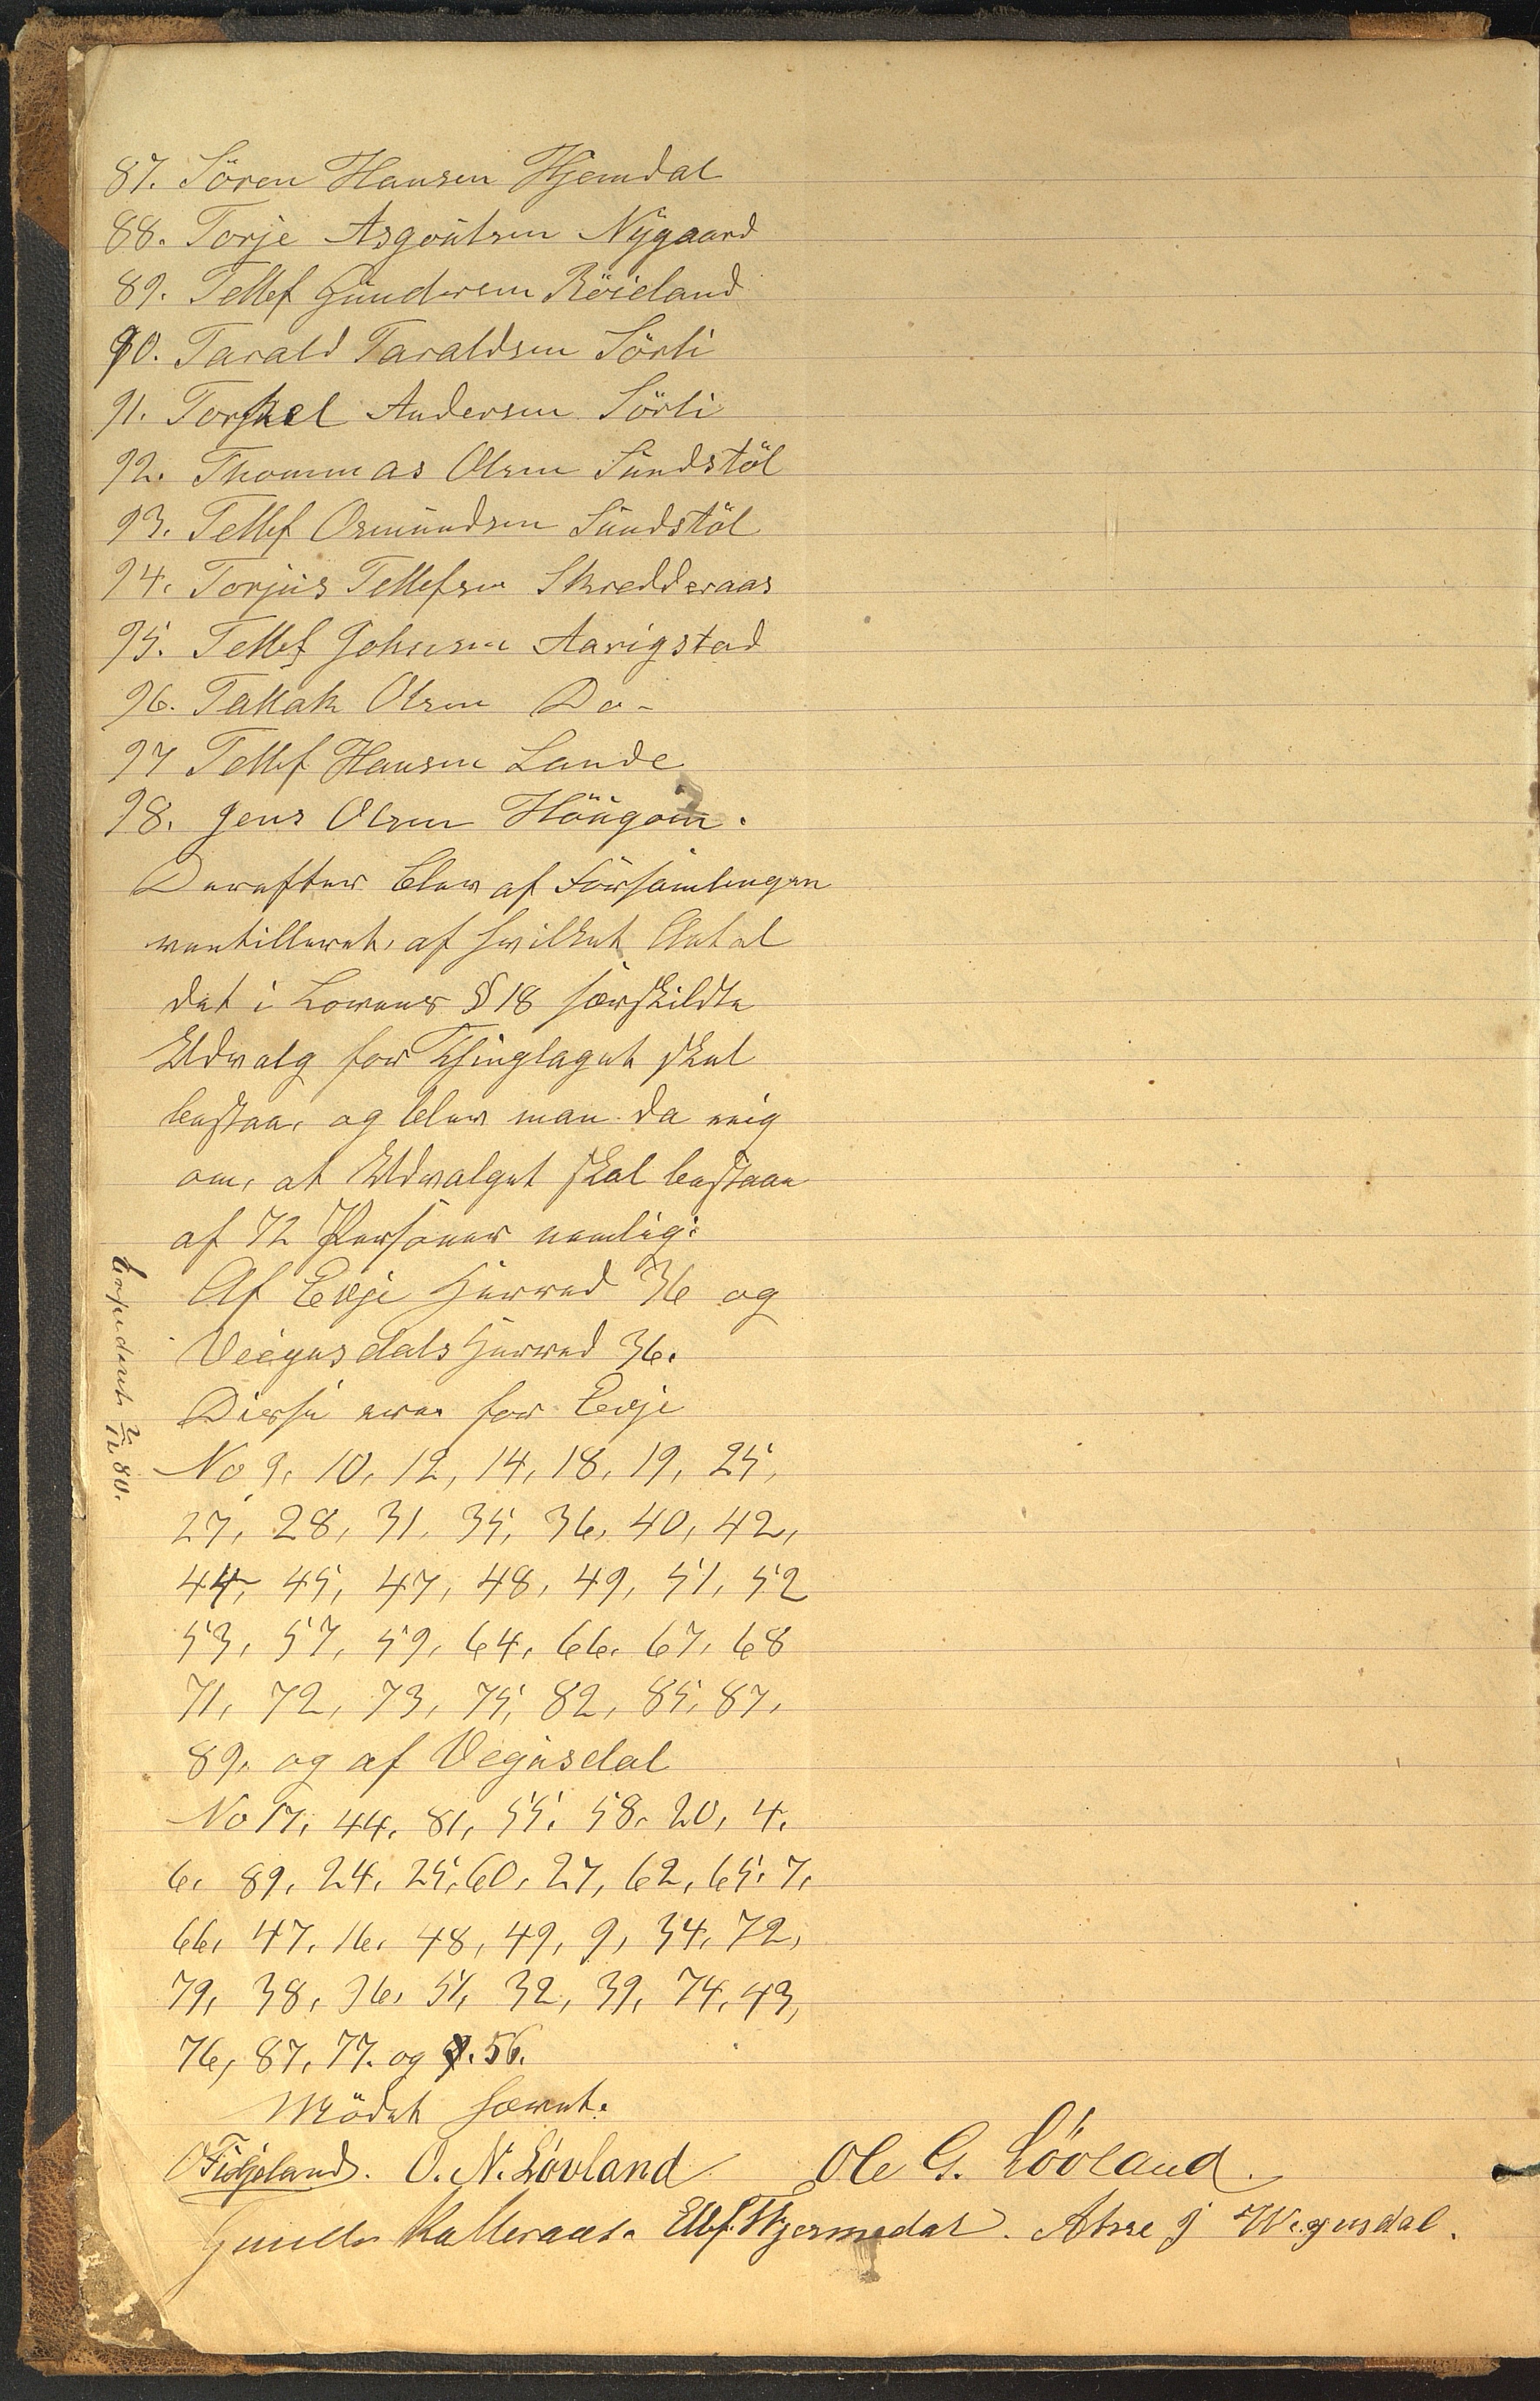 87. Sören Hansen Hjemdal
88. Torje Asgoutsen Nÿgaard
89. Tellef Gundersen Röieland
90. Tarald Taraldsen Sörli
91. Torkel Andersen Sörli
92. Thommas Olsen Sundstöl
93. Tellef Osmundsen Sundstöl
94. Torjus Tellefsen Skredderaas
95. Tellef Johnsen Aarigstad
96. Tallak Olsen Do-
97 Tellef Hansen Lande
98. Jens Olsen
Derefter blev af Forsamlingen
ventilleret, af hvilket Antal
det i Lovens § 18 særskildte
Udvalg for Thinglaget skal
bestaa, og blev man da enig
om, at Udvalget skal bestaa
af 72 Personer nemlig:
Af Evje Herred 36 og
Veigusdals Herred 36.
Disse ere for Evje
No 9, 10, 12, 14, 18, 19, 25,
27, 28, 31, 35, 36, 40, 42,
44, 45, 47, 48, 49, 51, 52
53, 57, 59, 64, 66, 67, 68
71, 72, 73, 75, 82, 85, 87,
89, og af Vegusdal
No 17, 44, 81, 55, 58, 20, 4,
6, 89, 24, 25, 60, 27, 62, 65, 7,
66, 47, 16, 48, 49, 9, 34, 72,
79, 38, 36, 51, 32, 39, 74, 43,
76, 87, 77. og 56.
Mödet hævet.
O. N. Lövland Ole G. Lövland.